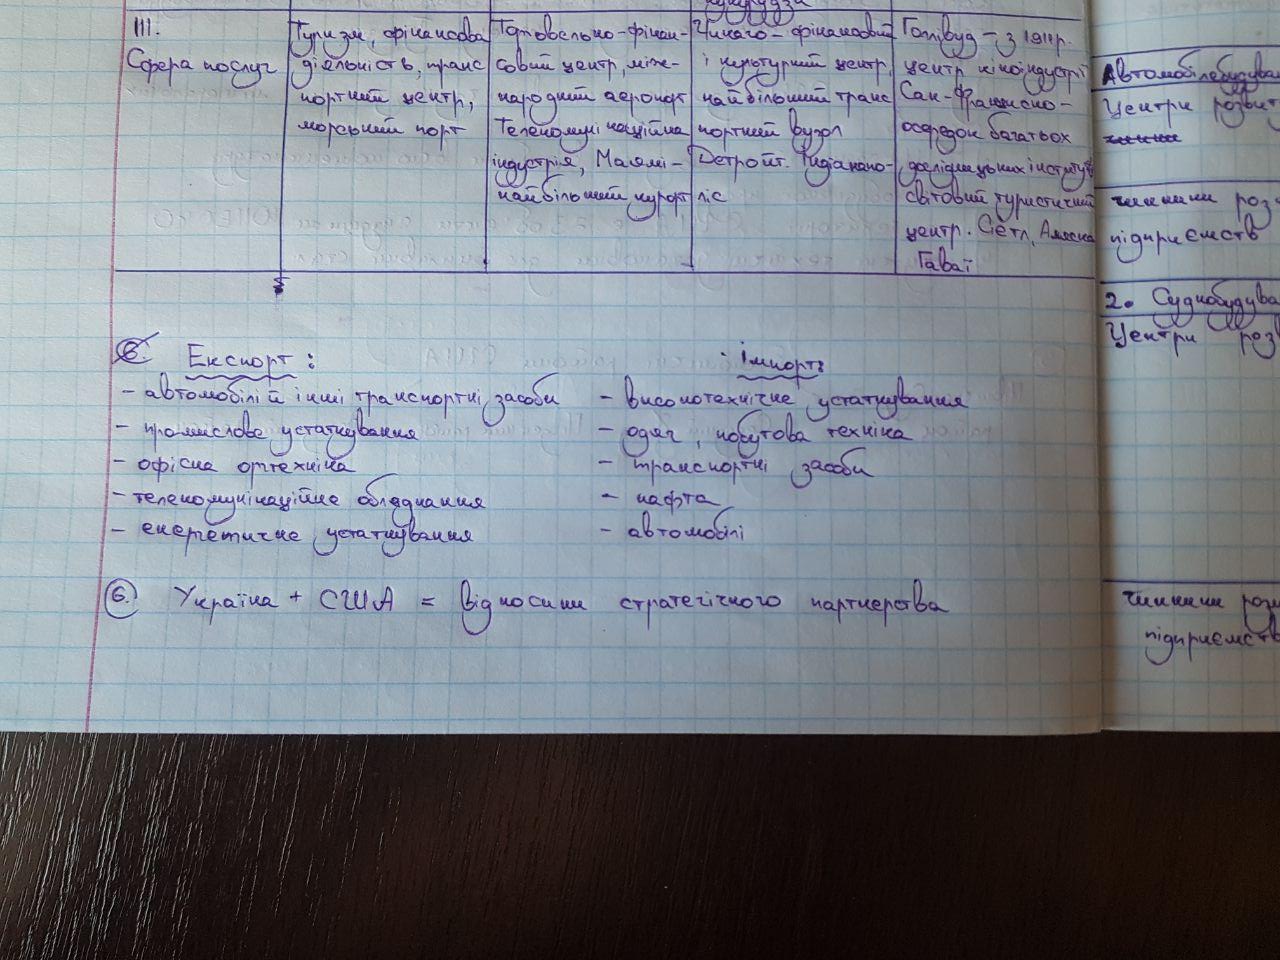 III.
Сфера послуг
Туризм, фінансова
діяльність, транс
портний центр,
морський порт
Торговельно-фінан-
совий центр, між-
народний аеропорт
Телекомунікаційна
індустрія, Маямі-
найбільший курорт
Чикаго - фінансовий
і культурний центр,
найбільший транс
портний вузол
Детройт. Індіанапо-
ліс
Голлівуд - з 1911 р.
центр кіноіндустрії
Сан-Франциско-
осередок багатьох
дослідницьких інститутів
світовий туристичний
центр. Сіетл, Аляска
Гаваї
Експорт:
- автомобілі й інші транспортні засоби
- промислове устаткування
- офісна оргтехніка
- телекомунікаційне обладнання
- енергетичне устаткування
Імпорт:
- високотехнічне устаткування
- одяг, побутова техніка
- транспортні засоби
- нафта
- автомобілі
6. Україна + США = відносини стратегічного партнерства
Автомобілебудува
Центри розвит
чинники роз
підприємств
2. Суднобудува
Центри роз
чинники розм
підприємств